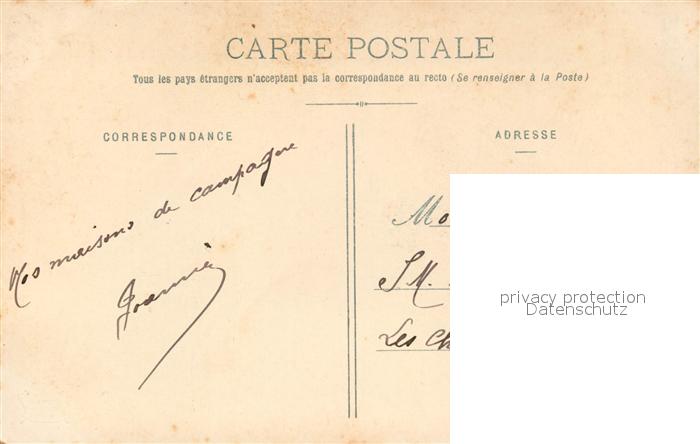 CARTE POSTALE
Tous les pays étrangers n'acceptent pas la correspondance au recto (Se renseigner à la Poste)
CORRESPONDANCE
ADRESSE
Nos maisons de campagne
Mo
S M.
Les Ch
privacy protection
Datenschutz